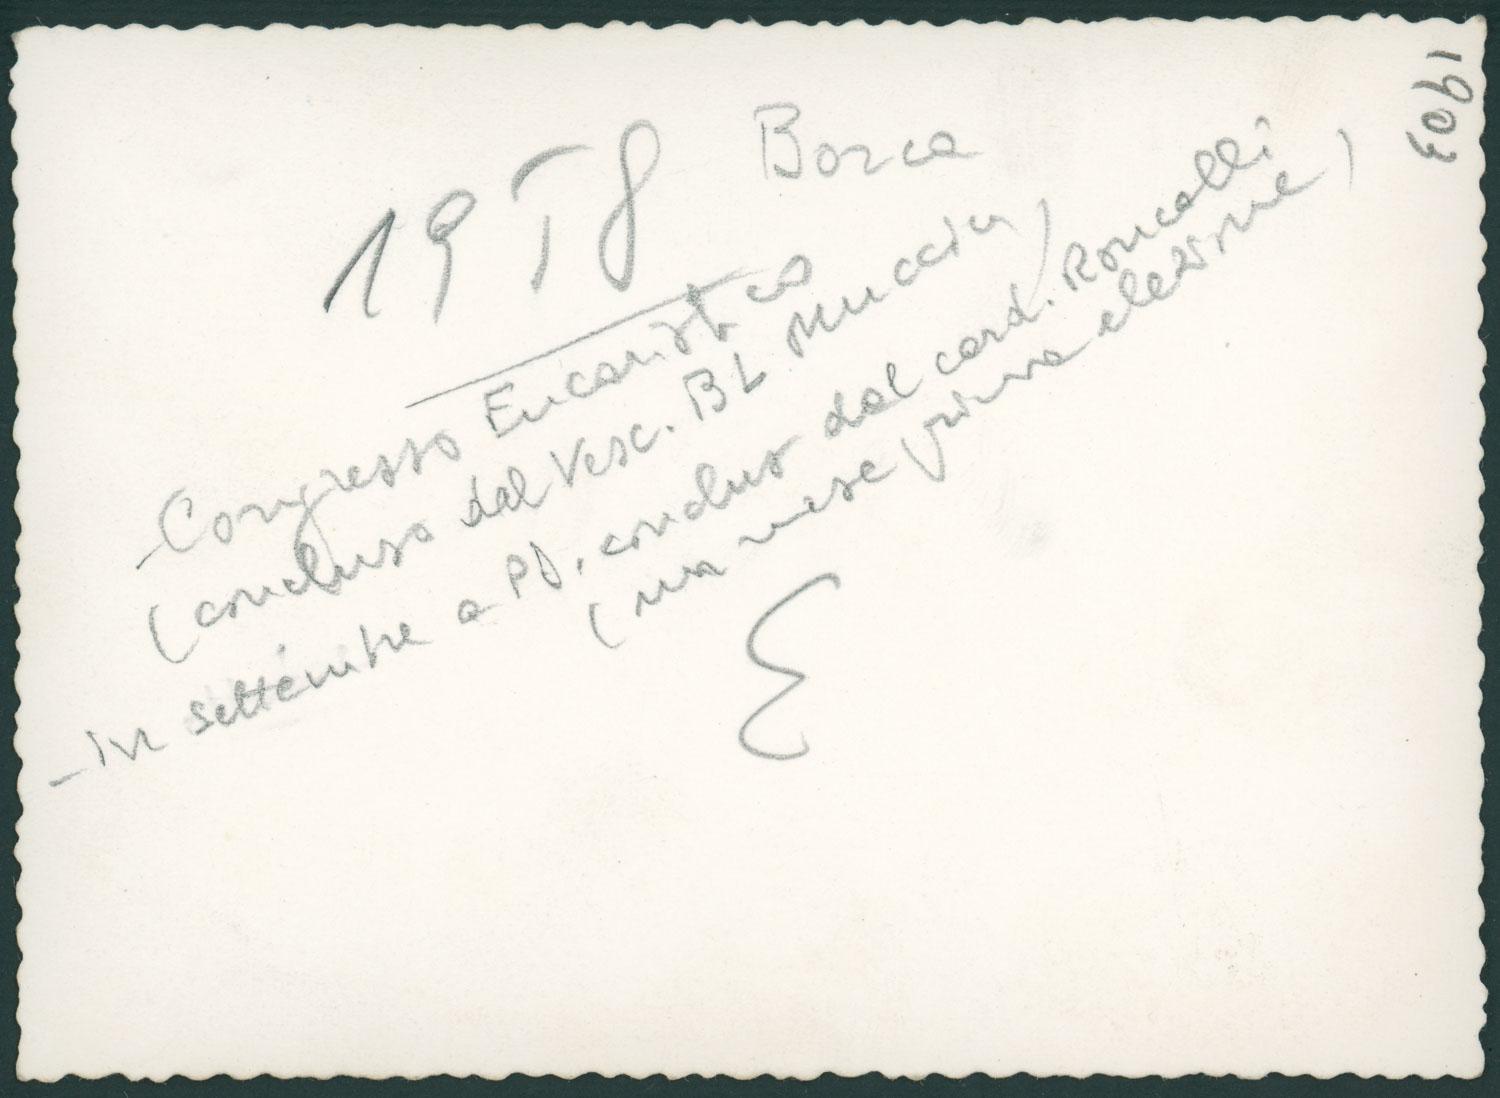 1903
1958 Borca
- Congresso Eucaristico
(concluso dal Vesc. BL Muccin)
- in settembre a PD, concluso dal card. Roncalli
(un mese prima elezione)